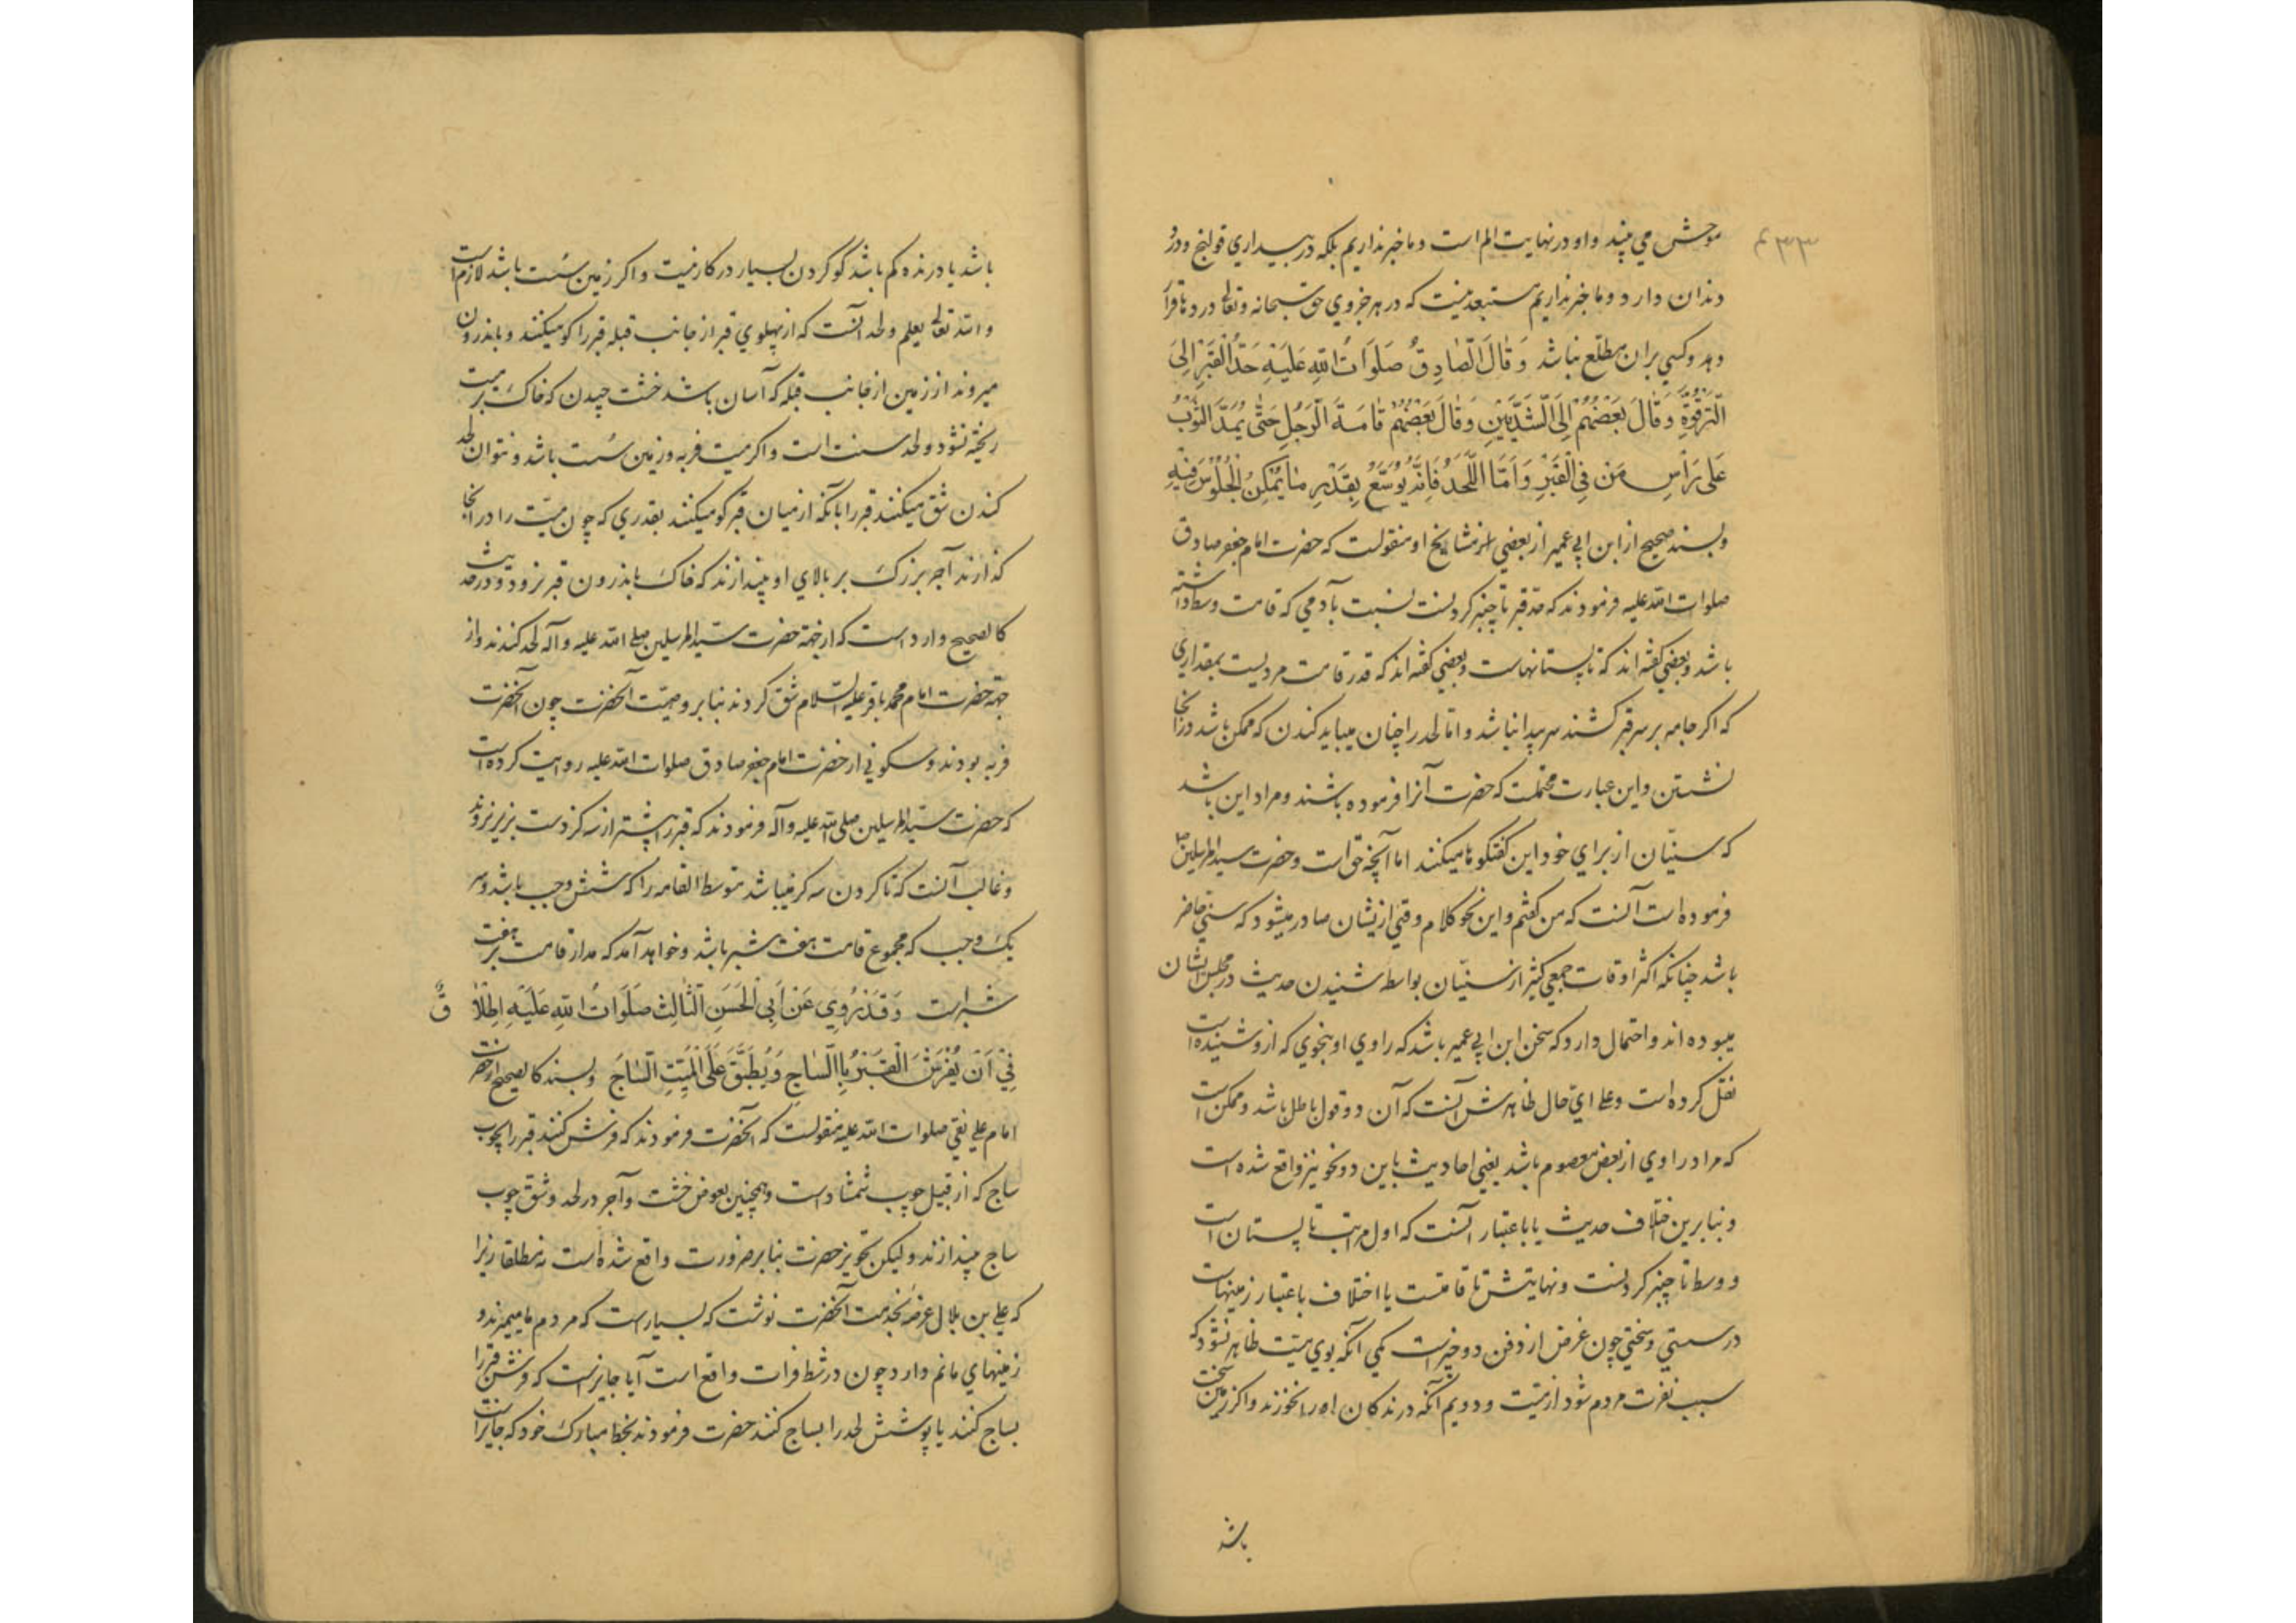 موحش می بیند و او در نهایت الم است و ما خبر نداریم بلکه در بیداری قولنج و درد
دندان دارد و ما خبر نداریم مستبعد نیست که در هر جزوی حق سبحانه و تعالی درد
دهد و کسی بران مطلع نباشد وَقَالَ الصَّادِقُ صَلَوَاتُ اللهِ عَلَيْهِ حَدُّ الْقَبْرِ اِلَى
التَّرْقُوَةِ وَقَالَ بَعْضُهُمْ اِلَى الثَّدْيَيْنِ وَقَالَ بَعْضُهُمْ قَامَةَ الرَّجُلِ حَتّٰى يُمَدَّ الثَّوْبُ
عَلٰى رَأْسِ مَنْ فِي الْقَبْرِ وَاَمَّا اللَّحْدُ فَاِنَّهُ يُوَسَّعُ بِقَدْرِ مَا يُمْكِنُ الْجُلُوسُ فِيهِ
و بسند صحیح از ابن ابی عمیر از بعضی از مشایخ او منقولست که حضرت امام جعفر صادق
صلوات الله علیه فرمودند که حد قبر تا چنبر کردنست نسبت بآدمی که قامت وسط داشته
باشد و بعضی کفته اند که تا پستانهاست و بعضی کفته اند که قدر قامت مردیست بمقداری
که اکر جامه بر سر قبر کشند سر پیدا نباشد و اما لحد را چنان میباید کندن که ممکن باشد در انجا
نشستن و این عبارت محتملست که حضرت آنرا فرموده باشند و مراد این باشد
که سنیان از برای خود این کفتکوها میکنند اما آنچه حق است و حضرت سید المرسلین
فرموده است آنست که من کفتم و این نحو کلام وقتی ازیشان صادر میشود که سنی حاضر
باشد چنانکه اکثر اوقات جمعی کثیر از سنیان بواسطه شنیدن حدیث در مجلس ایشان
میبوده اند و احتمال دارد که سخن ابن ابی عمیر باشد که راوی او بنحوی که ازو شنیده است
نقل کرده است و علی ای حال ظاهرش آنست که آن دو قول باطل باشد و ممکن است
که مراد راوی از بعض معصوم باشد یعنی احادیث باین دو نحو نیز واقع شده است
و بنابرین اختلاف حدیث یا باعتبار آنست که اول مراتب تا پستان است
و وسط تا چنبر کردنست و نهایتش تا قامتست یا اختلاف باعتبار زمینهاست
در سستی و سختی چون غرض از دفن دو چیز است یکی آنکه بوی میت ظاهر نشود که
سبب نفرت مردم شود از میت و دویم آنکه درندکان او را نخورند و اکر زمین سخت
باشد
باشد یا درنده کم باشد کو کردن بسیار در کار نیست و اکر زمین سست باشد لازم است
و الله تعالی یعلم و لحد آنست که از پهلوی قبر از جانب قبله قبر را کو میکنند و باندرون
میروند از زمین از جانب قبله که آسان باشد خشت چیدن که خاک بر میت
ریخته نشود و لحد سنت است و اکر میت فربه و زمین سست باشد و نتوان لحد
کندن شق میکنند قبر را بآنکه از میان قبر کو میکنند بقدری که چون میت را در انجا
کذارند آجر بزرک بر بالای او بیندازند که خاک باندرون قبر نرود و در حدیث
کالصحیح وارد است که از جهة حضرت سید المرسلین صلی الله علیه و آله لحد کندند و از
جهة حضرت امام محمد باقر علیه السلام شق کردند بنابر وصیت آنحضرت چون آنحضرت
فربه بودند و سکونی از حضرت امام جعفر صادق صلوات الله علیه روایت کرده است
که حضرت سید المرسلین صلی الله علیه و آله فرمودند که قبر را بیشتر از سه کز دست بزیر نروند
و غالب آنست که تا کردن سه کز میباشد متوسط القامه را که شش وجب باشد و سر
یک وجب که مجموع قامت هفت شبر باشد و خواهد آمد که مدار قامت بر هفت
شبر است وَقَدْ رُوِيَ عَنْ اَبِي الْحَسَنِ الثَّالِثِ صَلَوَاتُ اللهِ عَلَيْهِ اِطْلَاقٌ
فِيْ اَنْ يُفْرَشَ الْقَبْرُ بِالسَّاجِ وَيُطَبَّقَ عَلَى الْمَيِّتِ السَّاجُ و بسند کالصحیح از حضرت
امام علی نقی صلوات الله علیه منقولست که آنحضرت فرمودند که فرش کنند قبر را بچوب
ساج که از قبیل چوب شمشاد است و همچنین بعوض خشت و آجر در لحد و شق چوب
ساج بیندازند و لیکن تجویز حضرت بنابر ضرورت واقع شده است نه مطلقا زیرا
که علی بن بلال عرضه بخدمت آنحضرت نوشت که بسیارست که مردم ما میمیرند و
زمینهای ما نم دارد چون در شط فرات واقع است آیا جایز است که فرش قبر را
بساج کنند یا پوشش لحد را بساج کنند حضرت فرمودند بخط مبارک خود که جایز است